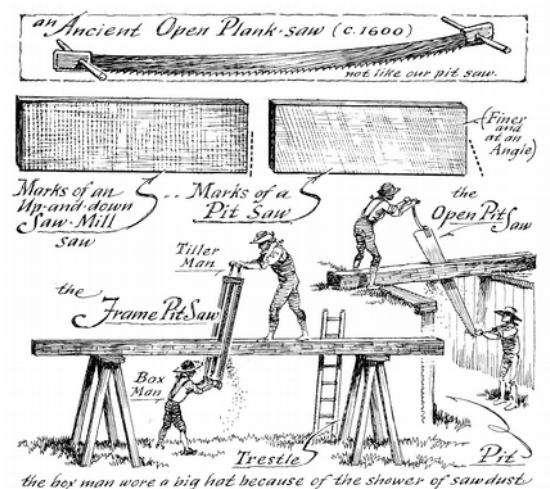 an Ancient Open Plank-saw (c.1600)
not like our pit saw.
(Finer
and
at an
Angle)
Marks of an
Up-and-down
Saw-Mill
saw
Marks of a
Pit Saw
the
Open Pit Saw
Tiller
Man
the
Frame Pit Saw
Box
Man
Trestle
Pit
the box man wore a big hat because of the shower of sawdust